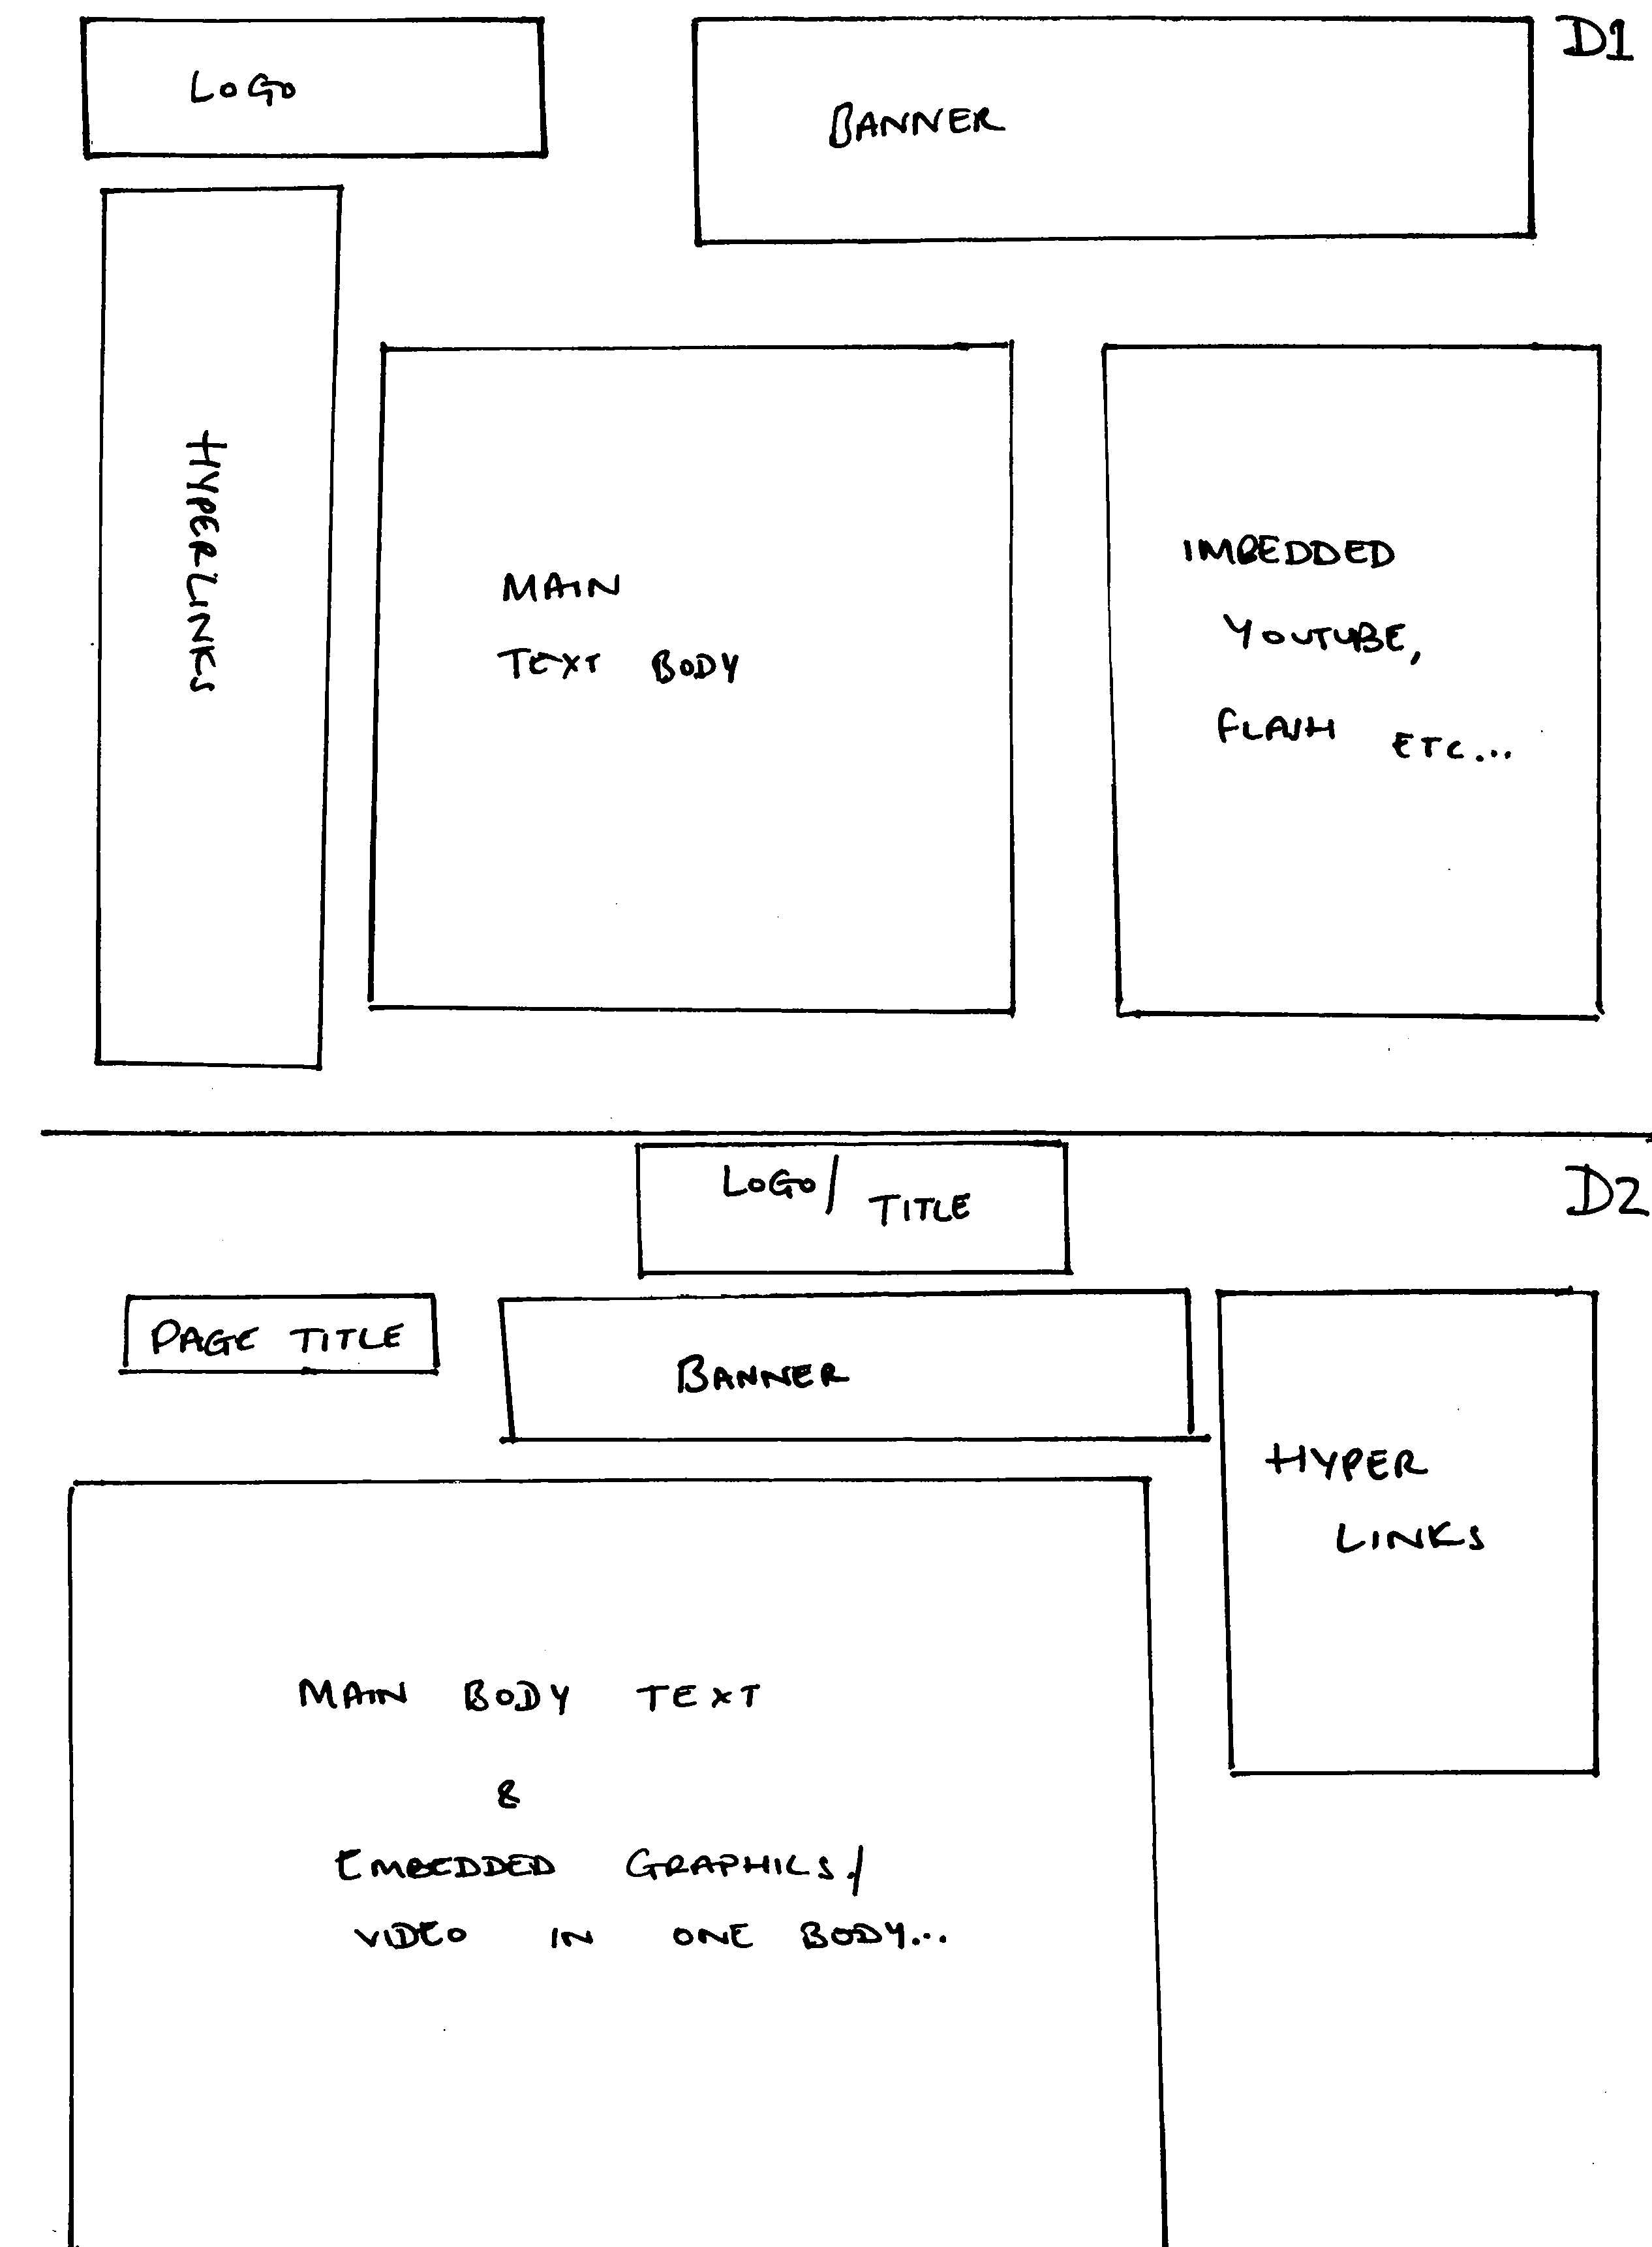 LOGO
BANNER
D1
HYPERLINKS
MAIN
TEXT BODY
IMBEDDED
YOUTUBE,
FLASH ETC...
LOGO/ TITLE
D2
PAGE TITLE
BANNER
HYPER
LINKS
MAIN BODY TEXT
&
EMBEDDED GRAPHICS/
VIDEO IN ONE BODY...